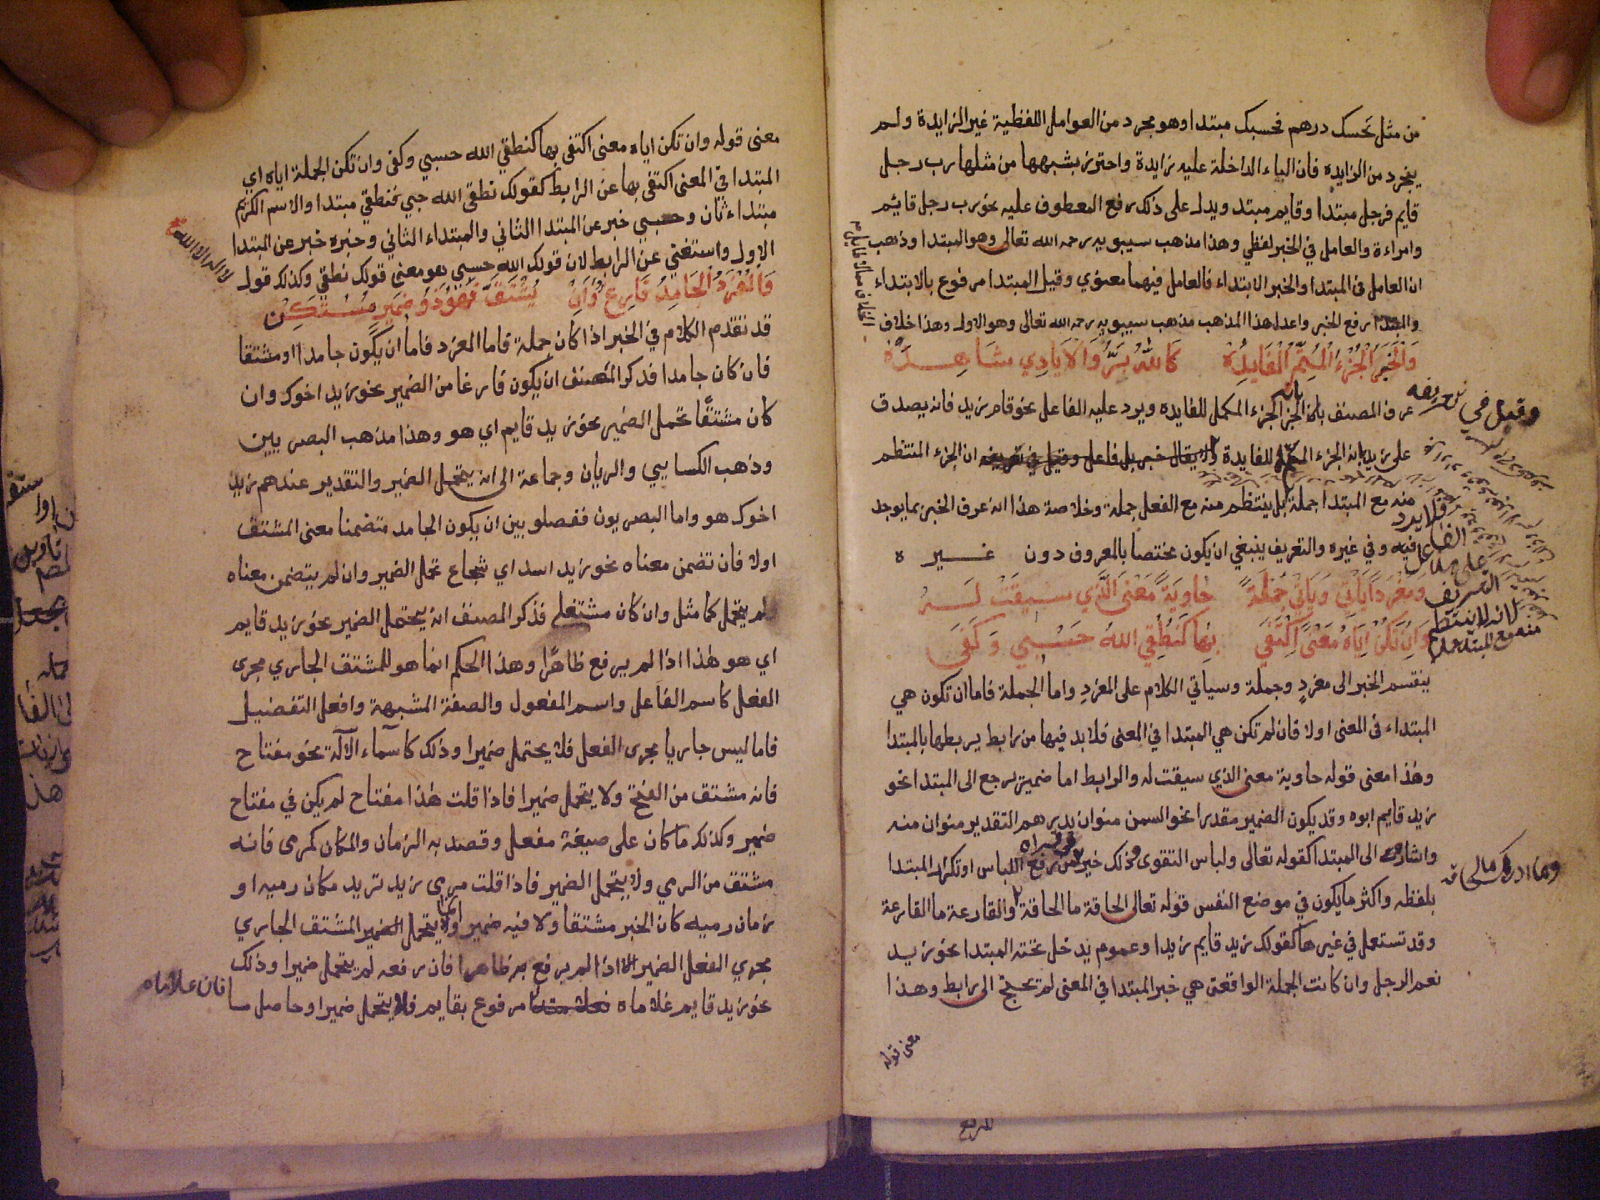 من مثل بحسبك درهم فحسبك مبتدا وهو مجرد من العوامل اللفظية غير الزايدة ولم
يتجرد من الزايده فان الباء الداخلة عليه زايدة واحترز بشبهها من مثلها رب رجل
قايم فرجل مبتدا وقايم مبتد ويدل على ذلك رفع المعطوف عليه نحو رب رجل قائم
وامراءة والعامل في الخبر لفظي وهذا مذهب سيبويه رحمه الله تعالى وهو المبتدا وذهب
ان العامل في المبتدا والخبر الابتداء فالعامل فيهما معنوي وقيل المبتدا مرفوع بالابتداء
والمبتدا رفع الخبر واعدل هذا المذهب مذهب سيبويه رحمه الله تعالى وهو الاول وهذا خلاف
وَالْخَبَرُ الْجُزْءُ الْمُتِمُّ الْفَايِدَهْ كَاللَّهُ بَرٌّ وَالْاَيَادِي شَاهِدَهْ
عرف المصنف بانه الخبر الجزء المكمل للفايده ويرد عليه الفاعل نحو قام زيد فانه يصدق
على زيد انه الجزء المتمم للفايدة ولا يقال خبر بل فاعل وقيل في تعريفه ان الجزء المنتظم
منه مع المبتدا جملة بل ينتظم منه مع الفعل جملة وخلاصة هذا انه عرف الخبر بما يوجد
فيه وفي غيره والتعريف ينبغي ان يكون مختصا بالمعروف دون غيره
وَمُفْرَدًا يَاْتِي وَيَاْتِي جُمْلَةً حَاوِيَةً مَعْنَى الَّذِي سِيقَتْ لَهُ
وَاِنْ تَكُنْ اِيَّاهُ مَعْنًى اكْتَفَى بِهَا كَنُطْقِي اللهُ حَسْبِي وَكَفَى
ينقسم الخبر الى مفردٍ وجملة وسياتي الكلام على المفرد واما الجملة فاما ان تكون هي
المبتداء في المعنى اولا فان لم تكن هي المبتدا في المعنى فلا بد فيها من رابط يربطها بالمبتدا
وهذا معنى قوله حاوية معنى الذي سيقت له والرابط اما ضمير يرجع الى المبتدا نحو
زيد قايم ابوه وقد يكون الضمير مقدرا نحو السمن منوان بدرهم التقدير منوان منه
واشارة الى المبتدا كقوله تعالى ولباس التقوى ذلك خير من رفع اللباس او تكرار المبتدا
بلفظه واكثر ما يكون في موضع النفس قوله تعالى الحاقة ما الحاقة والقارعة ما القارعة
وقد تستعمل في غيرها كقولك زيد قايم زيدا وعموم يدخل تحته المبتدا نحو زيد
نعم الرجل وان كانت الجملة الواقعة هي خبر المبتدا في المعنى لم تحتج الى رابط وهذا
معنى قوله
وقيل في تعريفه
فلا يرد
الفاعل
على هذا
التعريف
لانه لا ينتظم
منه مع المبتدا جملة
وما ادريك مالحاقة
في قراه
معنى قوله وان تكن اياه معنى اكتفى بها كنطقي الله حسبي وكفى وان تكن الجملة اياه اي
المبتدا في المعنى اكتفى بها عن الرابط كقولك نطقي الله حسبي فنطقي مبتدا والاسم الكريم
مبتداء ثان وحسبي خبر عن المبتدا الثاني والمبتداء الثاني وخبره خبر عن المبتدا
الاول واستغني عن الرابط لان قولك الله حسبي هو معنى قولك نطقي وكذلك قول
لا اله الا الله
وَالْمُفْرَدُ الْجَامِدُ فَارِغٌ وَاِنْ يُشْتَقَّ فَهْوَ ذُو ضَمِيرٍ مُسْتَكِنّْ
قد تقدم الكلام في الخبر اذا كان جملة فاما المفرد فاما ان يكون جامدا او مشتقا
فان كان جامدا فذكر المصنف ان يكون فارغا من الضمير نحو زيد اخوك وان
كان مشتقًا تحمل الضمير نحو زيد قايم اي هو وهذا مذهب البصريين
وذهب الكسايي والرمان وجماعة الى انه يتحمل الضمير والتقدير عندهم زيد
اخوك هو واما البصريون ففصلو بين ان يكون الجامد متضمنا معنى المشتق
اولا فان تضمن معناه نحو زيد اسد اي شجاع تحمل الضمير وان لم يتضمن معناه
ولم يتحمل كما مثل وان كان مشتغلي فذكر المصنف انه يحتمل الضمير نحو زيد قايم
اي هو هذا اذا لم يرفع ظاهرًا وهذا الحكم انما هو للمشتق الجاري مجرى
الفعل كاسم الفاعل واسم المفعول والصفة المشبهة وافعل التفضيل
فاما ليس جاريا مجرى الفعل فلا يحتمل ضميرا وذلك كاسماء الآلة نحو مفتاح
فانه مشتق من الفتح ولا يتحمل ضميرا فاذا قلت هذا مفتاح لم يكن في مفتاح
ضمير وكذلك ما كان على صيغة مفعل وقصد به الزمان والمكان كمرمى فانه
مشتق من الرمي ولا يتحمل الضمير فاذا قلت مرمى زيد تريد مكان رميه او
زمان رميه كان الخبر مشتقا ولا فيه ضمير وانما يتحمل الضمير المشتق الجاري
مجرى الفعل الضمير الا اذا لم يرفع به ظاهرا فان رفعه لم يتحمل ضميرا وذلك
نحو زيد قايم غلاماه مرفوع بقايم فلا يتحمل ضميرا وحاصل ما
فان غلاماه